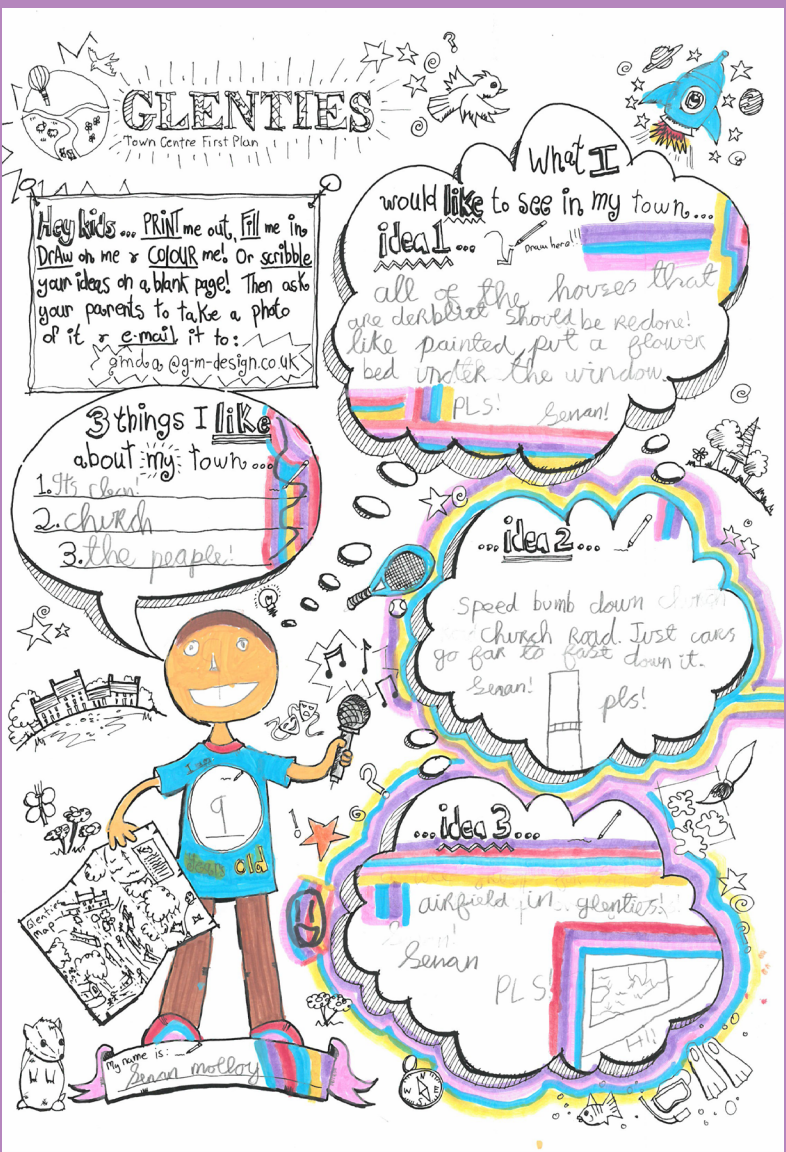 GLENTIES
Town Centre First Plan
Hey kids... PRINT me out, Fill me in
DrAw on me & COLOUR me! Or scribble
your ideas on a blank page! Then ask
your parents to take a photo
of it & e-mail it to:
gmda@g-m-design.co.uk
What I
would like to see in my town...
idea 1...
Draw here!!!
all of the houses that
are derblict should be redone!
like painted, put a flower
bed under the window
PLS! Senan!
3 things I like
about my town...
1. It's clean!
2. church
3. the peaple!
...idea 2...
Speed bumb down
church Road. Just cars
go far to fast down it.
Senan! pls!
I am
9
years old
Glenties
Map
...idea 3...
airfield in glenties!
Senan
PLS!
HI!
My name is:...
Senan molloy
N
W E
S